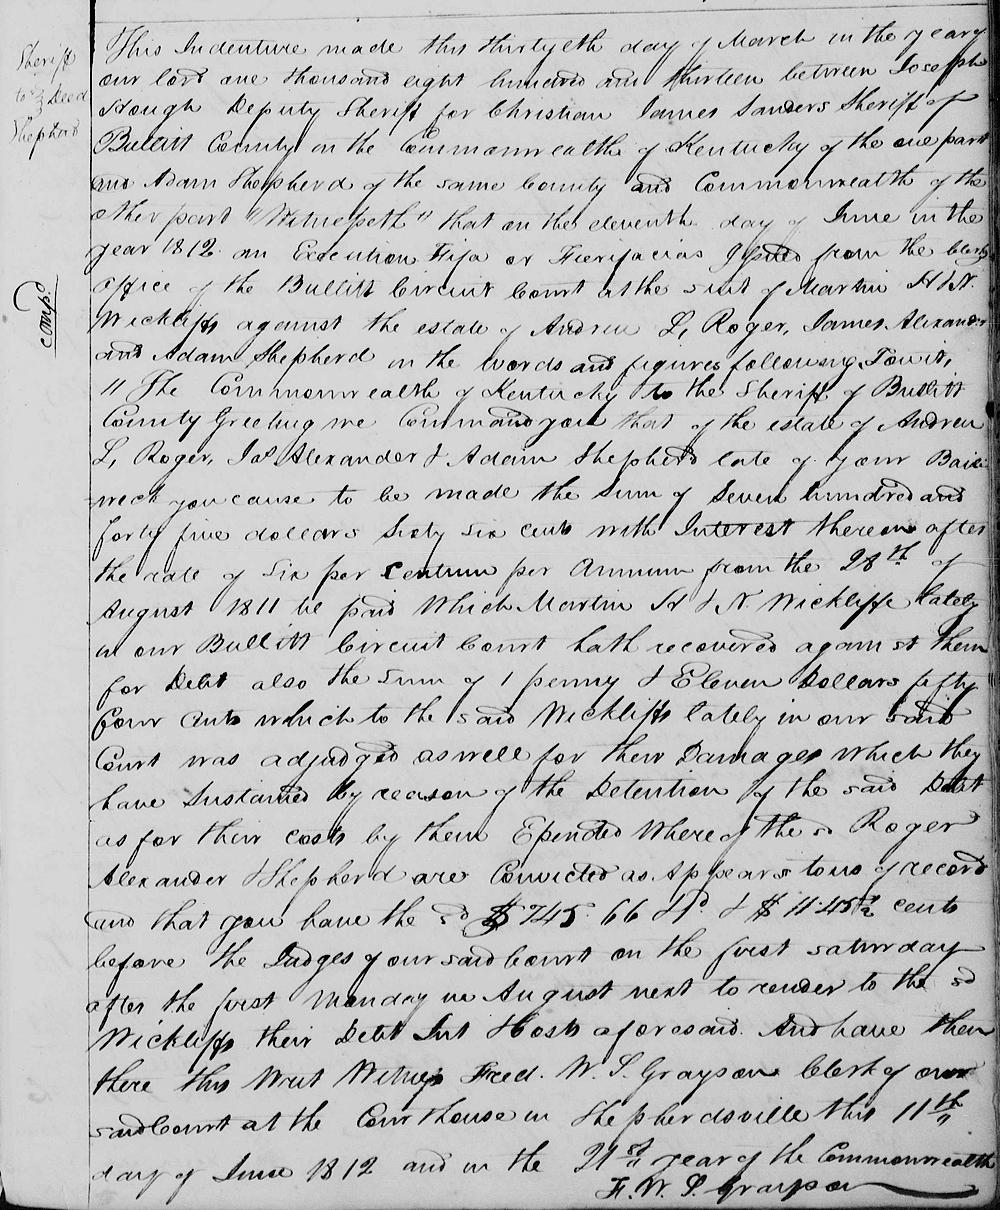 Sheriff
to } Deed
Shepherd
This Indenture made this thirtyeth day of March in the year of
our lord one thousand eight hundred and thirteen between Joseph
Hough Deputy Sheriff for Christian James Sanders Sheriff of
Bullitt County in the Commonwealth of Kentucky of the one part
and Adam Shepherd of the same County and Commonwealth of the
other part "Witnesseth" that on the eleventh day of June in the
year 1812 an Execution Fifa or Fierifacias Issued from the Clerks
office of the Bullitt Circuit Court at the suit of Martin H & N.
Wickliffs against the estate of Andrew L, Roger, James Alexander
and Adam Shepherd in the words and figures following, Towit,
"The Commonwealth of Kentucky to the Sheriff of Bullitt
County Greeting we Command you that of the estate of Andrew
L, Roger, Jas Alexander & Adam Shepherd late of your Baili
wick you cause to be made the Sum of Seven hundred and
forty five dollars Sixty six cents with Interest thereon after
the rate of Six per Centum per Annum from the 28th of
August 1811 til paid Which Martin H & N. Wickliffe lately
in our Bullitt Circuit Court hath recovered against them
for Debt also the Sum of 1 penny & Eleven Dollars fifty
four cents which to the said Wickliffs lately in our said
Court was adjudged as well for their Damages which they
have Sustained by reason of the Detention of the said Debt
as for their costs by them Epended Whereof the sd Roger
Alexander & Shepherd are Convicted as Appears to us of record
and that you have the sd $745.66 & $11.45½ cents
before the Judges of our said Court on the first saturday
after the first Monday in August next to render to the sd
Wickliffs their Debt Int & Costs aforesaid. And have then
there this Writ Witness Fred. W. S. Grayson Clerk of our
said Court at the Courthouse in Shepherdsville this 11th
day of June 1812 and in the 21st year of the Commonwealth
F. W. S. Grayson
compd